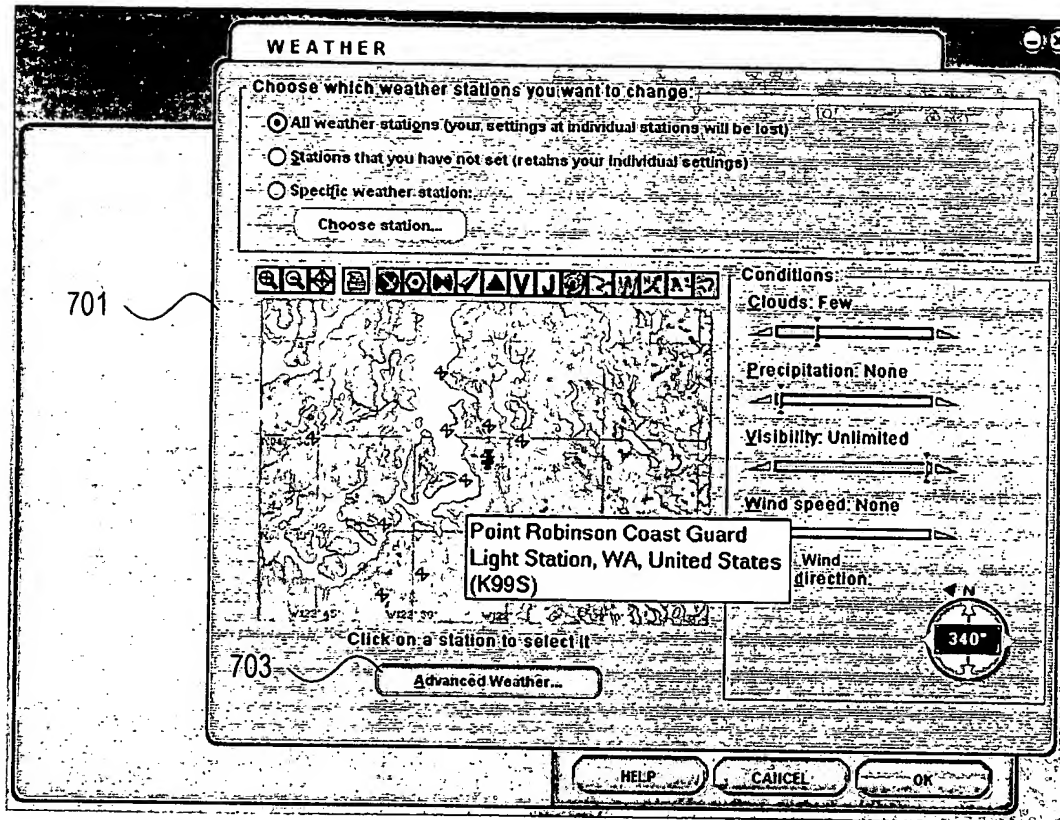 WEATHER
Choose which weather stations you want to change:
All weather stations (your settings at individual stations will be lost)
Stations that you have not set (retains your individual settings)
Specific weather station:
Choose station...
701
V J
Conditions:
Clouds: Few
Precipitation: None
Visibility: Unlimited
Wind speed: None
Wind
direction:
N
340°
Point Robinson Coast Guard
Light Station, WA, United States
(K99S)
Click on a station to select it
703
Advanced Weather...
HELP CANCEL OK